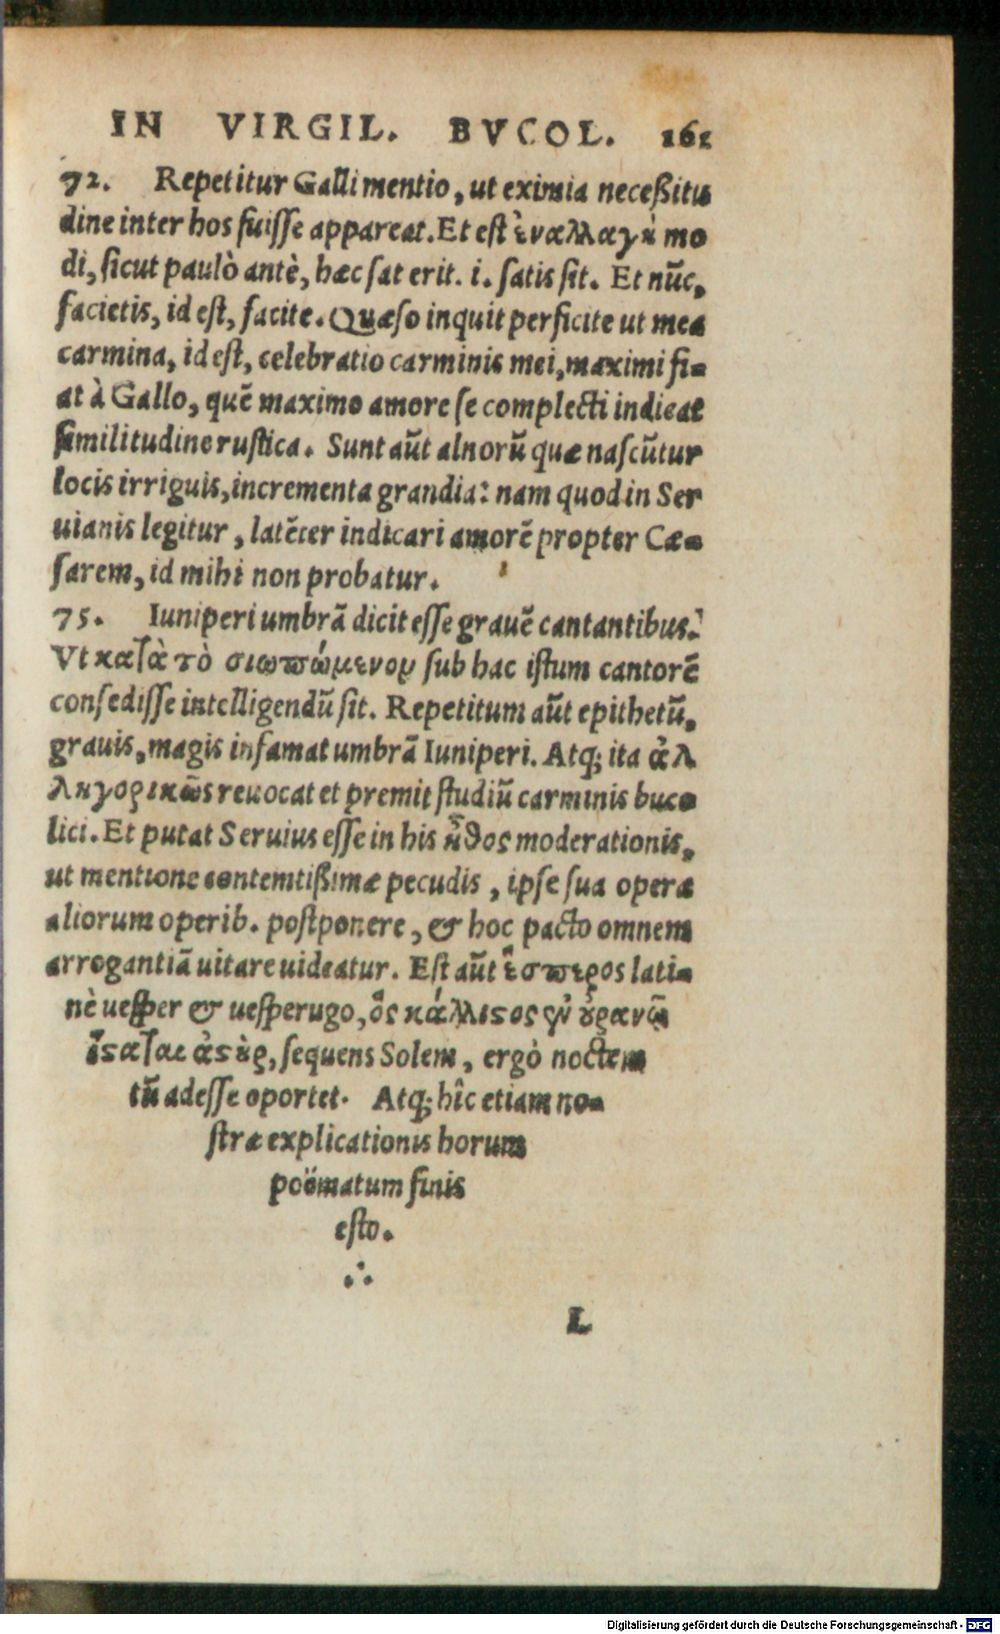 IN VIRGIL. BVCOL. 161
72. Repetitur Galli mentio, ut eximia neceßitu
dine inter hos fuisse appareat. Et est ἐναλλαγὴ mo
di, sicut paulò antè, hæc sat erit. i. satis sit. Et nūc,
facietis, id est, facite. Quæso inquit perficite ut mea
carmina, id est, celebratio carminis mei, maximi fi-
at à Gallo, quē maximo amore se complecti indicat
similitudine rustica. Sunt aūt alnorū quæ nascūtur
locis irriguis, incrementa grandia: nam quod in Ser
uianis legitur, latēter indicari amorē propter Cæ-
sarem, id mihi non probatur.
75. Iuniperi umbrā dicit esse grauē cantantibus:
Vt κατὰ τὸ σιωπώμενον sub hac istum cantorē
consedisse intelligendū sit. Repetitum aūt epithetū,
grauis, magis infamat umbrā Iuniperi. Atq; ita ἀλ
ληγορικῶς reuocat et premit studiū carminis buco
lici. Et putat Seruius esse in his ἦθος moderationis,
ut mentione contemtißimæ pecudis, ipse sua opera
aliorum operib. postponere, & hoc pacto omnem
arrogantiā uitare uideatur. Est aūt ἕσπερος lati-
nè uesper & uesperugo, ὃς κάλλιστος ἐν οὐρανῷ
ἵσταται ἀστὴρ, sequens Solem, ergò noctem
tū adesse oportet. Atq; hîc etiam no-
stræ explicationis horum
poëmatum finis
esto.
∴
L
Digitalisierung gefördert durch die Deutsche Forschungsgemeinschaft - DFG